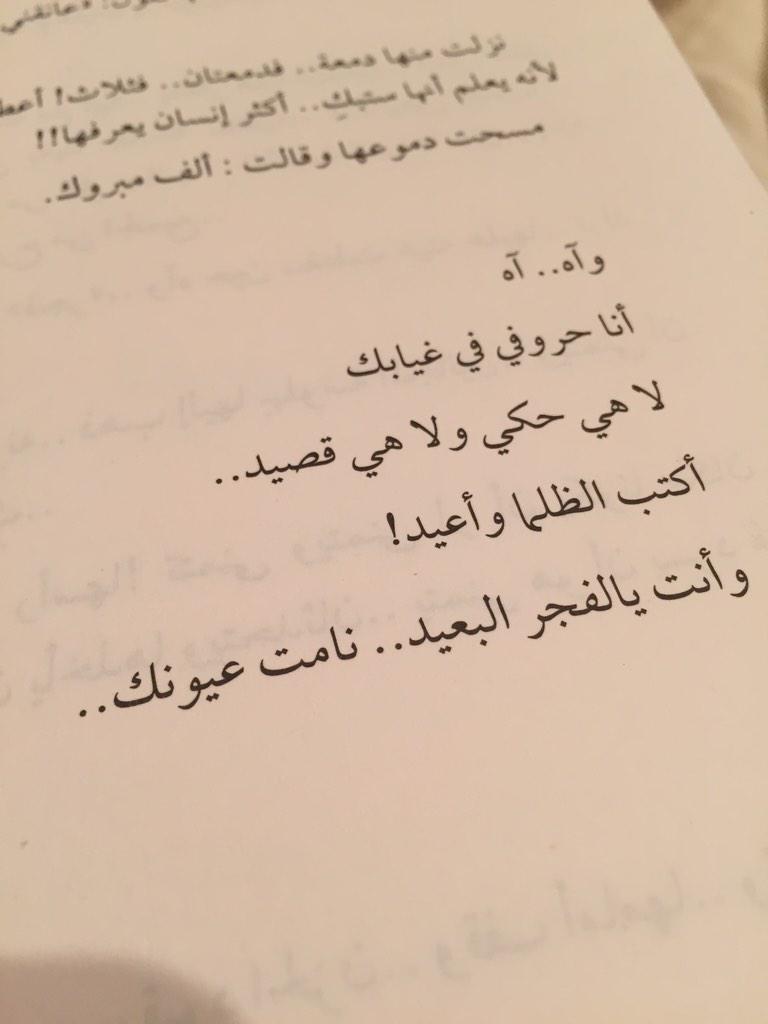 «عانقني
نزلت منها دمعة.. فدمعتان.. فثلاث! أعط
لأنه يعلم أنها ستبكِ.. أكثر إنسان يعرفها!!
مسحت دموعها وقالت : ألف مبروك.
وآه.. آه
أنا حروفي في غيابك
لا هي حكي ولا هي قصيد..
أكتب الظلما وأعيد!
وأنت يالفجر البعيد.. نامت عيونك..